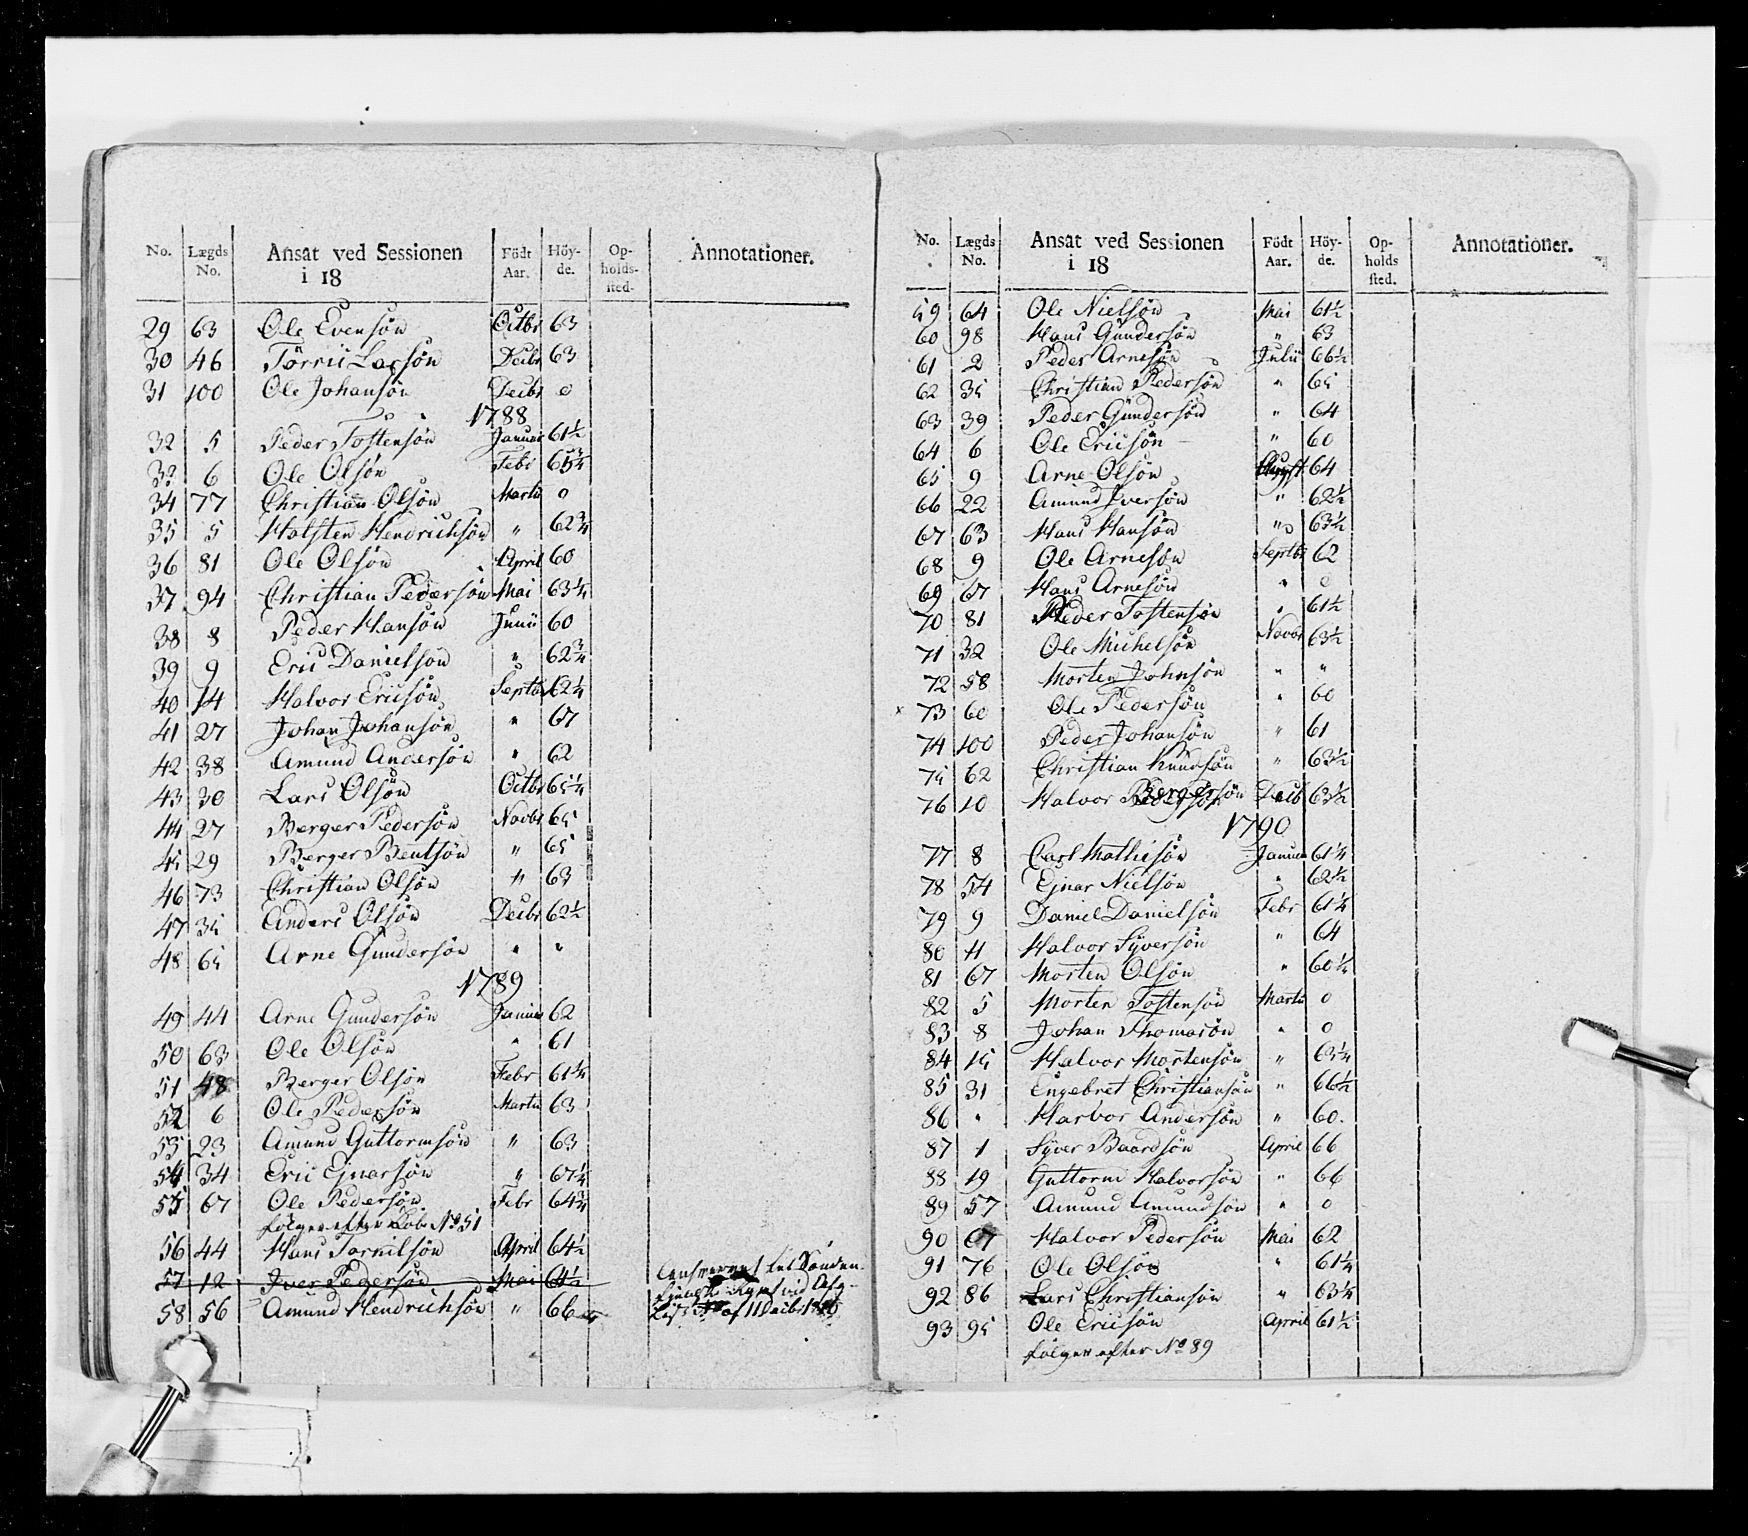 No. Lægds No. Ansat ved Sessionen i 18 Födt Aar. Höy-de. Op-holds-sted. Annotationer.
29 63 Ole Evensön Octbr 63
30 46 Törris Larsön Decbr 63
31 100 Ole Johansön Decbr 0
1788
32 5 Peder Tostensön Januar 61½
33 6 Ole Olsön Febr 65¾
34 77 Christian Olsön Marts 0
35 5 Halsten Hendrichsön " 62¾
36 81 Ole Olsön April 60
37 94 Christian Pedersön Mai 63¼
38 8 Peder Hansön Junii 60
39 9 Eric Danielsön " 62¾
40 14 Halvor Ericsön Septbr 62¼
41 27 Johan Johansön " 67
42 38 Amund Andersön " 62
43 30 Lars Olsön Octbr 65¼
44 27 Berger Pedersön Novbr 65
45 29 Berger Bentsön " 65
46 73 Christian Olsön " 63
47 35 Anders Olsön Decbr 62½
48 65 Arne Gundersön " "
1789
49 44 Arne Gundersön Januar 62
50 63 Ole Olsön " 61
51 48 Berger Olsön Febr 61¼
52 6 Ole Pedersön Marts 63
53 23 Amund Guttormsön " 63
54 34 Eric Ejnarsön " 67¼
55 67 Ole Pedersön Febr 64¾
fölger efter Löb No 51
56 44 Hans Tornilsön April 64½
57 12 Iver Pedersön Mai 61½
58 56 Amund Hendrichsön " 66 af 11 Decbr
No. Lægds No. Ansat ved Sessionen i 18 Födt Aar. Höy-de. Op-holds sted. Annotationer.
59 64 Ole Nielsön Mai 61½
60 98 Hans Gundersön " 63
61 2 Peder Arnesön Julii 66½
62 35 Christian Pedersön " 65
63 39 Peder Gundersön " 64
64 6 Ole Ericsön " 60
65 9 Arne Olsön August 64
66 22 Amund Iversön " 62½
67 63 Hans Hansön " 63½
68 9 Ole Arnesön Septbr 62
69 67 Hans Arnesön " 0
70 81 Peder Tostensön " 61½
71 32 Ole Michelsön Novbr 63½
72 58 Morten Johnsön " "
x 73 60 Ole Pedersön " 60
74 100 Peder Johansön " 61
75 62 Christian Knudsön " 63½
76 10 Halvor Bergersön Decb 63½
1790
77 8 Carl Mathisön Januar 61¼
78 54 Ejnar Nielsön " 62½
79 9 Daniel Danielsön Febr 61¼
80 11 Halvor Syversön " 64
81 67 Morten Olsön " 60¼
82 5 Morten Tostensön Marts 0
83 8 Johan Thomasön " 0
84 15 Halvor Mortensön " 63¼
85 31 Engebret Christiansön " 66½
86 " Harvor Andersön " 60.
87 1 Syver Baardsön April 66
88 19 Guttorm Halvorsön " 66
89 57 Amund Amundsön " 0
90 67 Halvor Pedersön Mai 62
91 76 Ole Olsön " 61¼
92 86 Lars Christiansön " 63¼
93 95 Ole Ericsön April 61½
fölger efter No 89